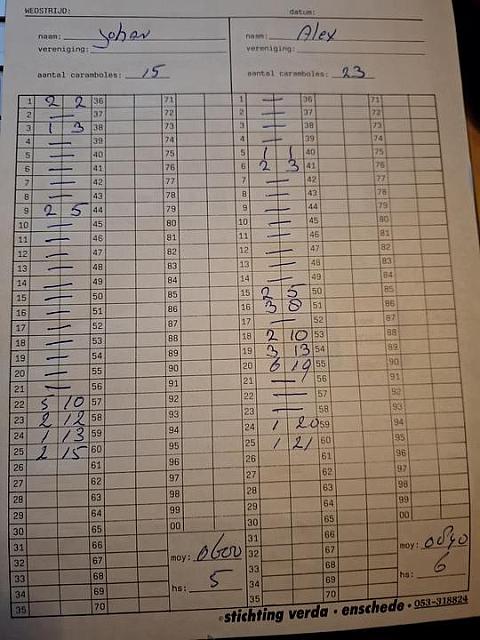 WEDSTRIJD: datum:
naam: Johan naam: Alex
vereniging: vereniging:
aantal caramboles: 15 aantal caramboles: 23
1 2 2 36 71 1 — 36 71
2 — 37 72 2 — 37 72
3 1 3 38 73 3 — 38 73
4 — 39 74 4 — 39 74
5 — 40 75 5 1 1 40 75
6 — 41 76 6 2 3 41 76
7 — 42 77 7 — 42 77
8 — 43 78 8 — 43 78
9 2 5 44 79 9 — 44 79
10 — 45 80 10 — 45 80
11 — 46 81 11 — 46 81
12 — 47 82 12 — 47 82
13 — 48 83 13 — 48 83
14 — 49 84 14 — 49 84
15 — 50 85 15 2 5 50 85
16 — 51 86 16 3 8 51 86
17 — 52 87 17 — 52 87
18 — 53 88 18 2 10 53 88
19 — 54 89 19 3 13 54 89
20 — 55 90 20 6 19 55 90
21 — 56 91 21 — 56 91
22 5 10 57 92 22 — 57 92
23 2 12 58 93 23 — 58 93
24 1 13 59 94 24 1 20 59 94
25 2 15 60 95 25 1 21 60 95
26 61 96 26 61 96
27 62 97 27 62 97
28 63 98 28 63 98
29 64 99 29 64 99
30 65 00 30 65 00
31 66 moy: 0600 31 66 moy: 0840
32 67 32 67
33 68 hs: 5 33 68 hs: 6
34 69 34 69
35 70 35 70
©stichting verda • enschede • 053-318824